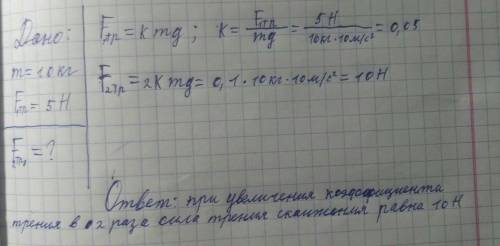 Дано:
m=10кг
Fтр=5Н
F2тр=?
Fтр=kmg; k=Fтр/mg=5Н/10кг·10м/с²=0,05
F2тр=2kmg=0,1·10кг·10м/с²=10Н
Ответ: при увеличения коэффициента
трения в 2 раза сила трения скольжения равна 10Н